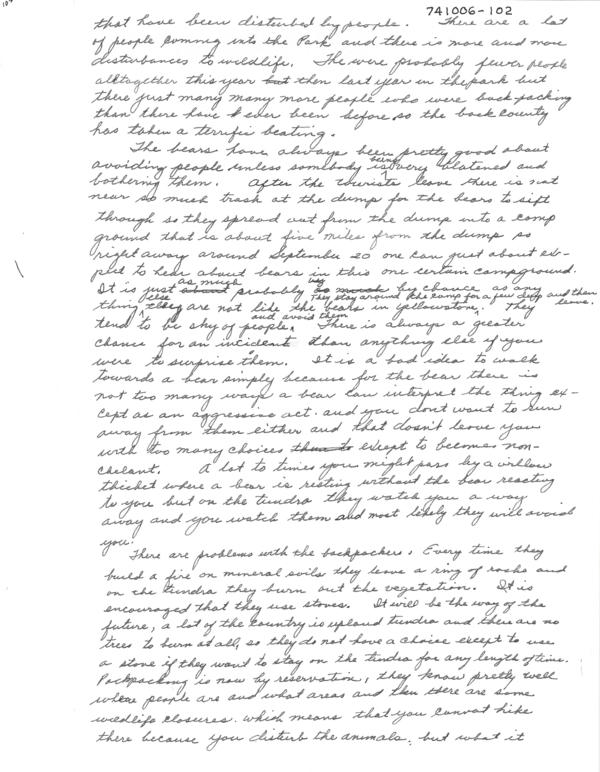 741006-102
that have been disturbed by people. There are a lot
of people coming into the Park and there is more and more
disturbances to wildlife. The were probably fewer people
alltogether this year but then last year in the park but
there just many many more people who were back packing
than there have ever been before, so the back country
has taken a terrific beating.
The bears have always been pretty good about
avoiding people unless somebody is being very blatened and
bothering them. After the tourists leave there is not
near so much trash at the dump for the bears to sift
through so they spread out from the dump into a camp
ground that is about five miles from the dump so
right away around September 20 one can just about ex-
pect to hear about bears in this one certain campground.
It is just about as much probably by chance as any
thing else They stay around the camp for a few days and then leave.
they are not like the bears in Yellowstone. They
tend to be shy of people. and avoid them There is always a greater
chance for an incident than anything else if you
were to surprise them. It is a bad idea to walk
towards a bear simply because for the bear there is
not too many ways a bear can interpret the thing ex-
cept as an aggressive act. and you dont want to run
away from them either and that dosn't leave you
with too many choices except to becomes non-
chelant. A lot to times you might pass by a willow
thicket where a bear is resting without the bear reacting
to you but on the tundra they watch you a way
away and you watch them and most likely they will avoid
you.
There are problems with the backpackers. Every time they
build a fire on mineral soils they leave a ring of rocks and
on the tundra they burn out the vegetation. It is
encouraged that they use stoves. It will be the way of the
future, a lot of the country is upland tundra and there are no
trees to burn at all, so they do not have a choice except to use
a stove if they want to stay on the tundra for any length of time.
Packpacking is now by reservation, they know pretty well
where people are and what areas and then there are some
wildlife closures. which means that you cannot hike
there because you disturb the animals. but what it